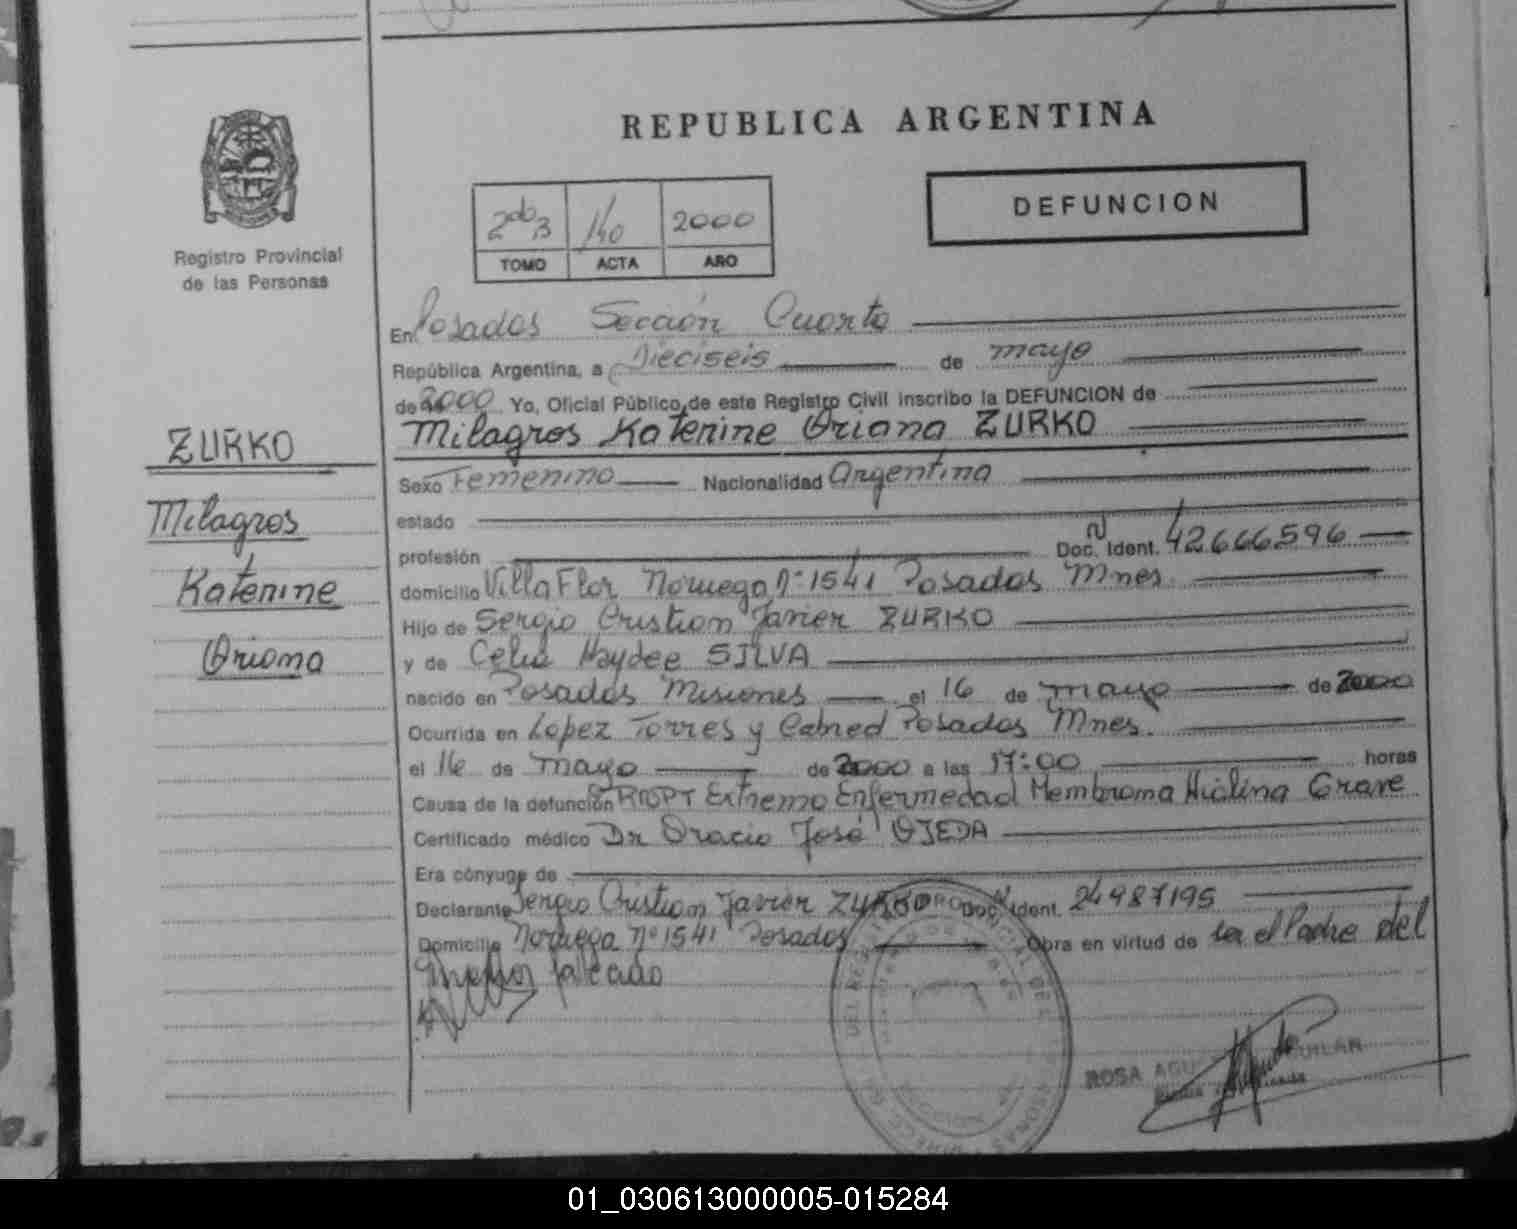 REPUBLICA ARGENTINA
DEFUNCION
2do B 140 2000
TOMO ACTA AÑO
Registro Provincial
de las Personas
En Posadas Sección Cuarta
República Argentina, a Dieciseis de mayo
de 2000 Yo, Oficial Público de este Registro Civil inscribo la DEFUNCION de
Milagros Katerine Oriana ZURKO
ZURKO
Milagros
Katerine
Oriana
Sexo Femenino Nacionalidad Argentina
estado
profesión Doc. Ident. 42666596
domicilio Villa Flor Noruega Nº 1541 Posadas Mnes.
Hijo de Sergio Cristian Javier ZURKO
y de Celia Haydee SILVA
nacido en Posadas Misiones el 16 de mayo de 2000
Ocurrida en Lopez Torres y Cabred Posadas Mnes.
el 16 de mayo de 2000 a las 17:00 horas
Causa de la defunción RNPT Extremo Enfermedad Membrana Hialina Grave
Certificado médico Dr Oracio José OJEDA
Era cónyuge de
Declarante Sergio Cristian Javier ZURKO Doc. Ident. 24987195
Domicilio Noruega Nº 1541 Posadas Obra en virtud de ser el Padre del
fallecido
ROSA AGUILAR
01_030613000005-015284